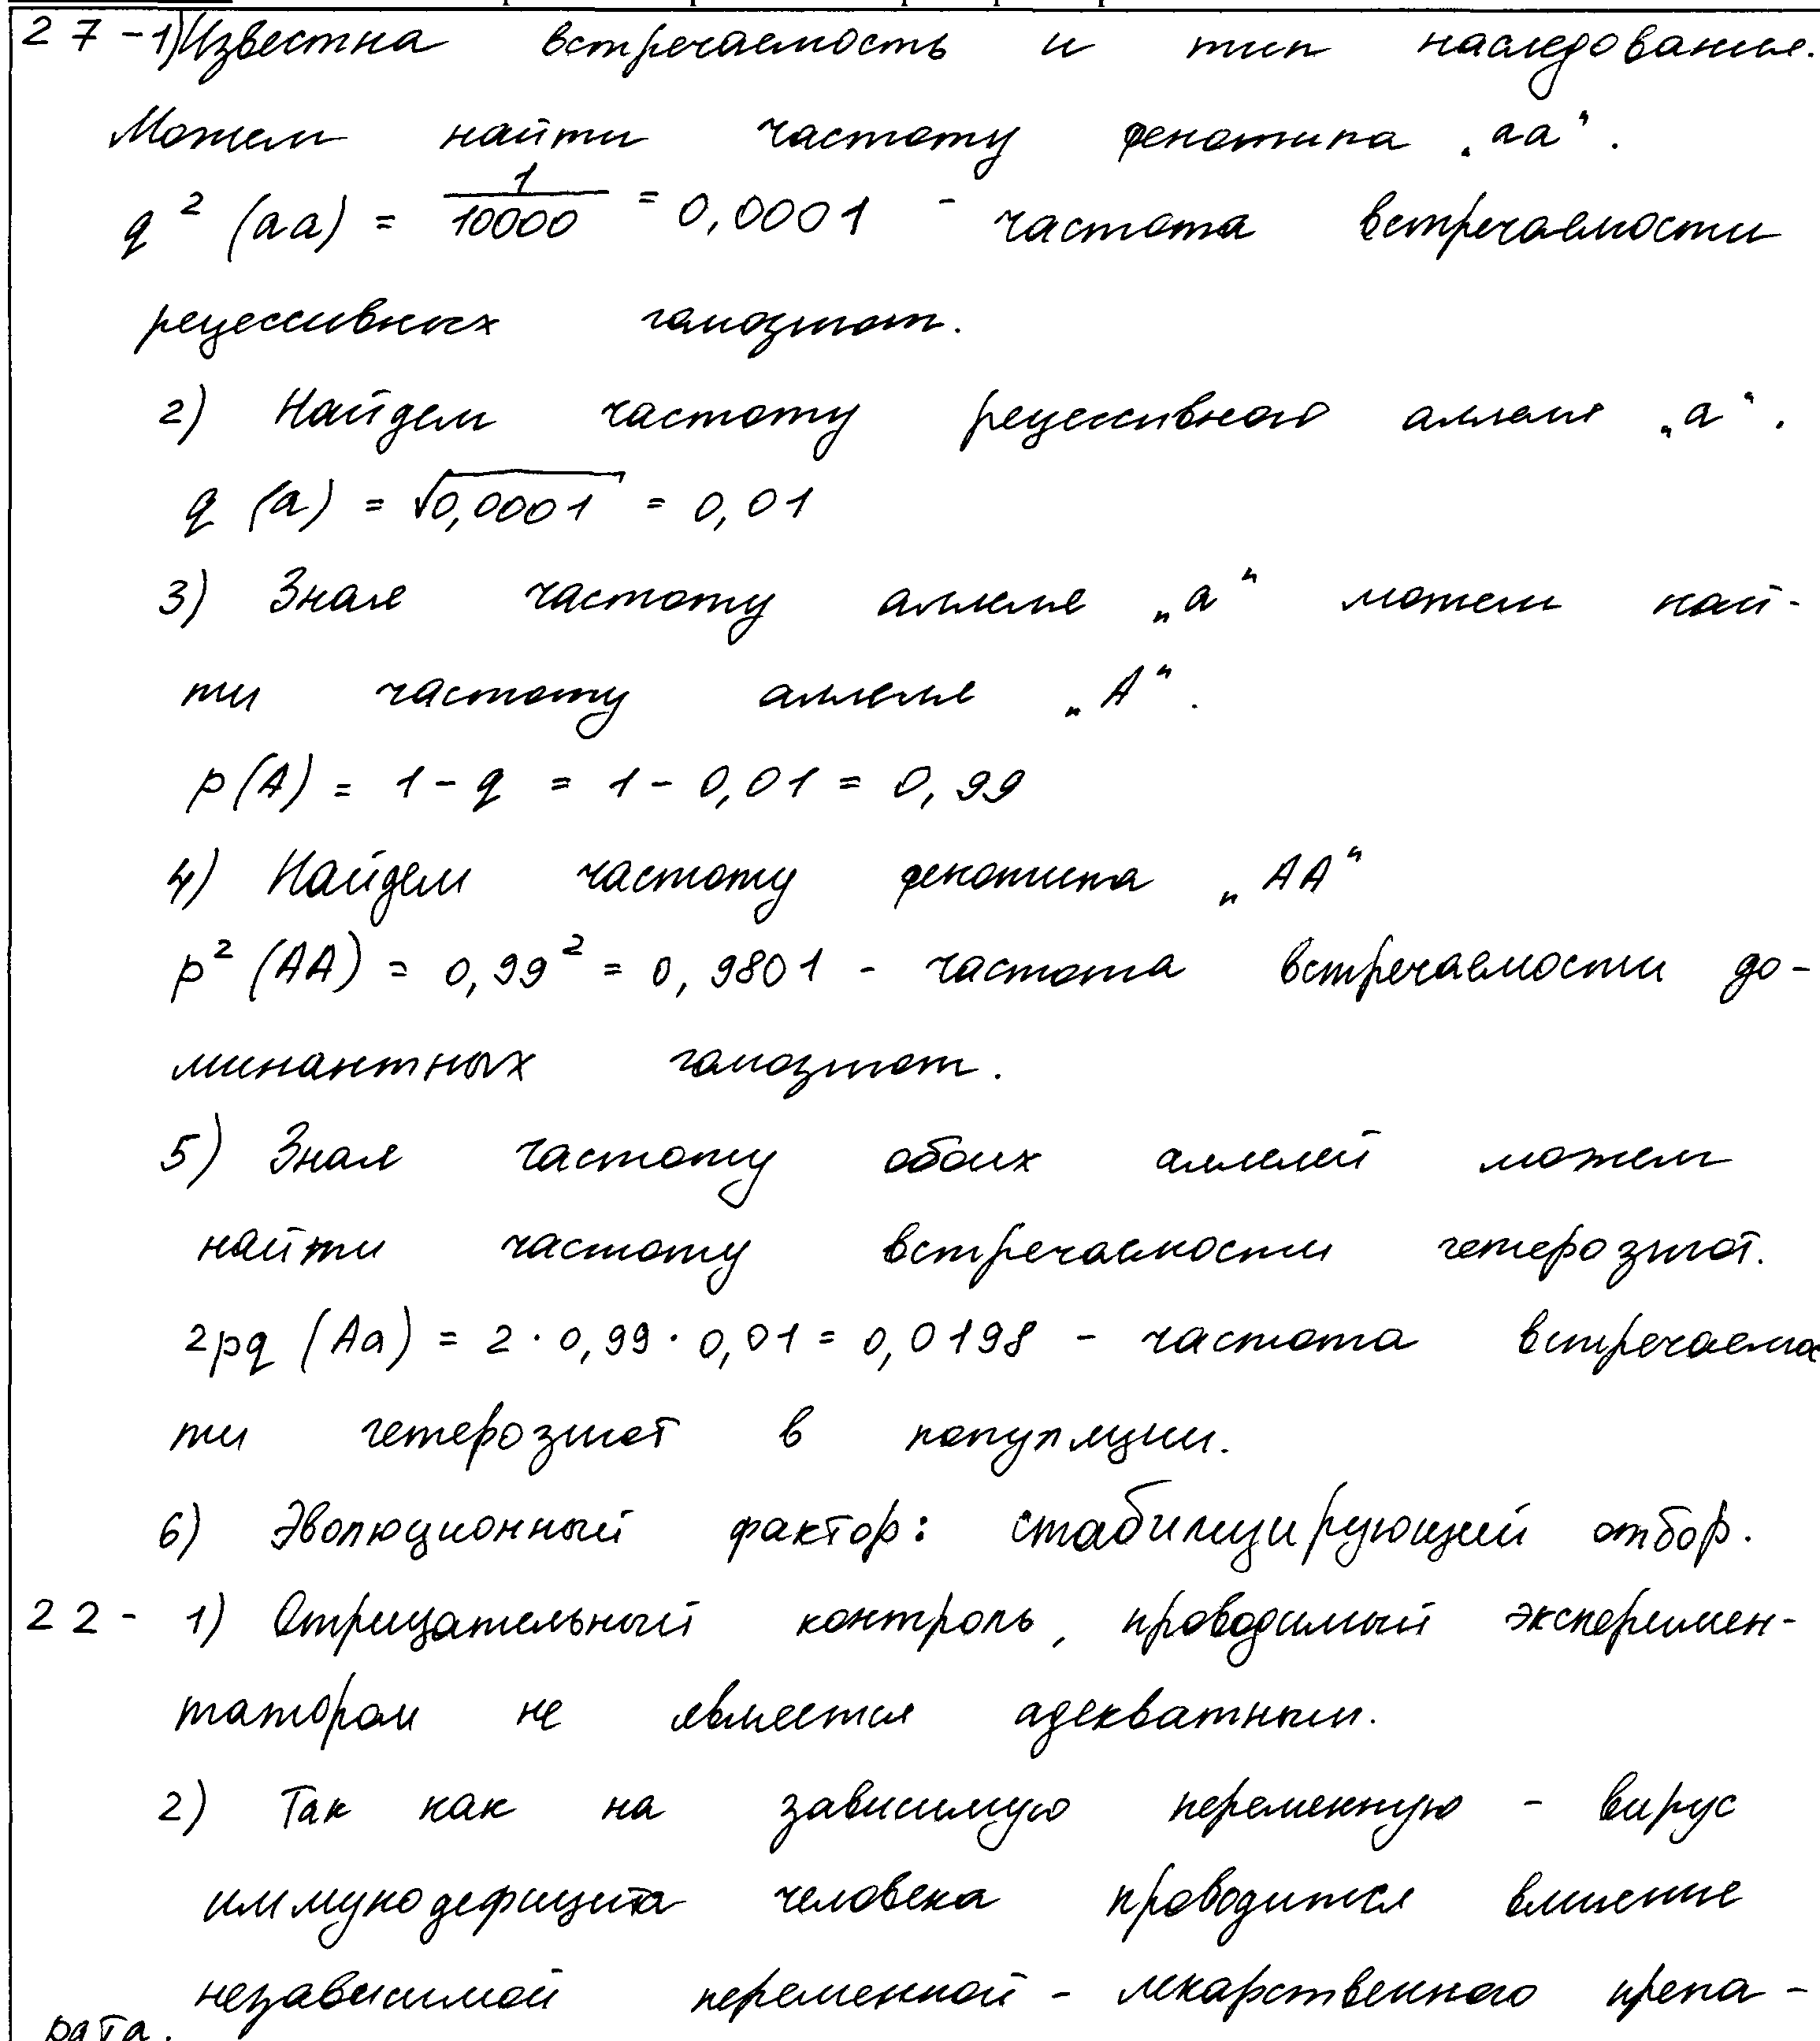 27-1) Известна встречаемость и тип наследования.
Можем найти частоту фенотипа „аа“.
q² (аа) = 1/10000 = 0,0001 - частота встречаемости
рецессивных гомозигот.
2) Найдем частоту рецессивной аллели „а“.
q (а) = √0,0001 = 0,01
3) Зная частоту аллели „а“ можем най-
ти частоту аллели „А“.
p(А) = 1 - q = 1 - 0,01 = 0,99
4) Найдем частоту фенотипа „АА“
p² (АА) = 0,99² = 0,9801 - частота встречаемости до-
минантных гомозигот.
5) Зная частоту обоих аллелей можем
найти частоту встречаемости гетерозигот.
2pq (Аа) = 2 · 0,99 · 0,01 = 0,0198 - частота встречаемос
ти гетерозигот в популяции.
6) Эволюционный фактор: стабилизирующий отбор.
22- 1) Отрицательный контроль, проводимый эксперимен-
татором не является адекватным.
2) Так как на зависимую переменную - вирус
иммунодефицита человека проводится влияние
независимой переменной - лекарственного препа-
рата.